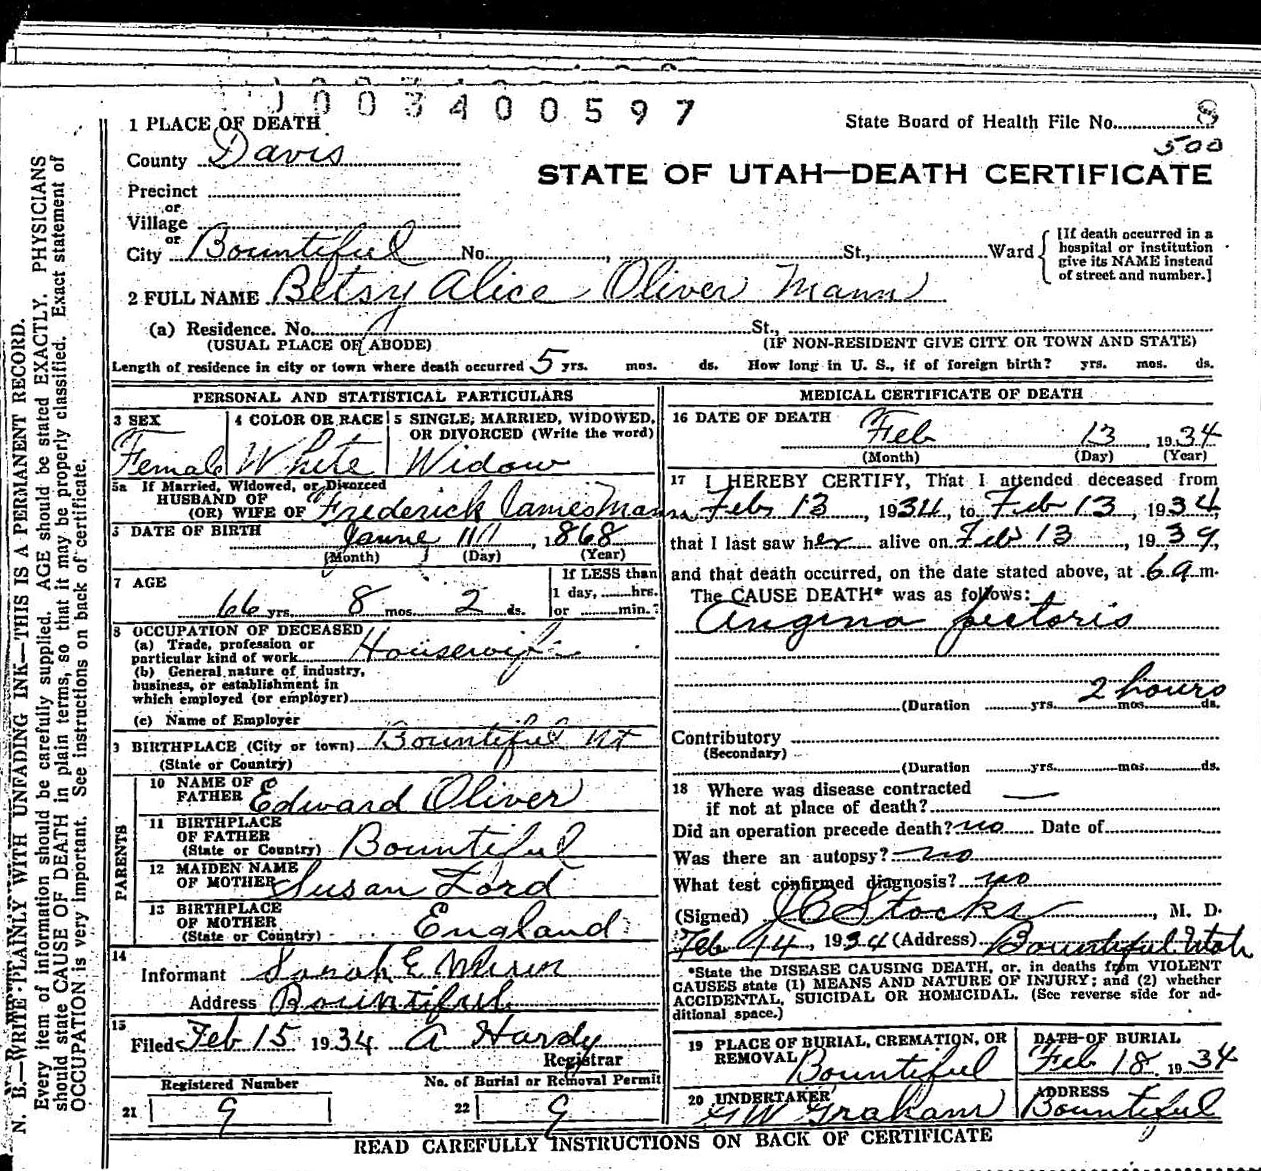 1003400597
1 PLACE OF DEATH
State Board of Health File No. 8
500
County Davis
STATE OF UTAH—DEATH CERTIFICATE
Precinct
or
Village
or
City Bountiful No. , St., Ward
[If death occurred in a hospital or institution give its NAME instead of street and number.]
2 FULL NAME Betsy Alice Oliver Mann
(a) Residence. No. St.,
(USUAL PLACE OF ABODE) (IF NON-RESIDENT GIVE CITY OR TOWN AND STATE)
Length of residence in city or town where death occurred 5 yrs. mos. ds. How long in U. S., if of foreign birth? yrs. mos. ds.
PERSONAL AND STATISTICAL PARTICULARS
3 SEX 4 COLOR OR RACE 5 SINGLE, MARRIED, WIDOWED, OR DIVORCED (Write the word)
Female White Widow
5a If Married, Widowed, or Divorced
HUSBAND OF
(OR) WIFE OF Frederick James Mann
DATE OF BIRTH June 11, 1868
(Month) (Day) (Year)
7 AGE If LESS than
1 day, hrs.
66 yrs. 8 mos. 2 ds. or min.?
8 OCCUPATION OF DECEASED
(a) Trade, profession or
particular kind of work Housewife
(b) General nature of industry,
business, or establishment in
which employed (or employer)
(c) Name of Employer
9 BIRTHPLACE (City or town) Bountiful Ut
(State or Country)
PARENTS
10 NAME OF
FATHER Edward Oliver
11 BIRTHPLACE
OF FATHER
(State or Country) Bountiful
12 MAIDEN NAME
OF MOTHER Susan Ford
13 BIRTHPLACE
OF MOTHER
(State or Country) England
14
Informant Sarah E
Address Bountiful
15
Filed Feb 15 1934 A Hardy
Registrar
Registered Number No. of Burial or Removal Permit
21 9 22 9
MEDICAL CERTIFICATE OF DEATH
16 DATE OF DEATH
Feb 13, 1934
(Month) (Day) (Year)
17 I HEREBY CERTIFY, That I attended deceased from
Feb 13, 1934, to Feb 13, 1934,
that I last saw her alive on Feb 13, 1934,
and that death occurred, on the date stated above, at 6 a m.
The CAUSE DEATH* was as follows:
Angina pectoris
2 hours
(Duration yrs. mos. ds.
Contributory
(Secondary)
(Duration yrs. mos. ds.
18 Where was disease contracted
if not at place of death? —
Did an operation precede death? no Date of
Was there an autopsy? no
What test confirmed diagnosis? no
(Signed) J C Stocks, M. D.
Feb 14, 1934 (Address) Bountiful Utah
*State the DISEASE CAUSING DEATH, or, in deaths from VIOLENT
CAUSES state (1) MEANS AND NATURE OF INJURY; and (2) whether
ACCIDENTAL, SUICIDAL OR HOMICIDAL. (See reverse side for ad-
ditional space.)
19 PLACE OF BURIAL, CREMATION, OR
REMOVAL Bountiful
DATE OF BURIAL
Feb 18 1934
20 UNDERTAKER
G W Graham
ADDRESS
Bountiful
READ CAREFULLY INSTRUCTIONS ON BACK OF CERTIFICATE
N. B.—WRITE PLAINLY WITH UNFADING INK—THIS IS A PERMANENT RECORD.
Every item of information should be carefully supplied. AGE should be stated EXACTLY. PHYSICIANS
should state CAUSE OF DEATH in plain terms, so that it may be properly classified. Exact statement of
OCCUPATION is very important. See instructions on back of certificate.